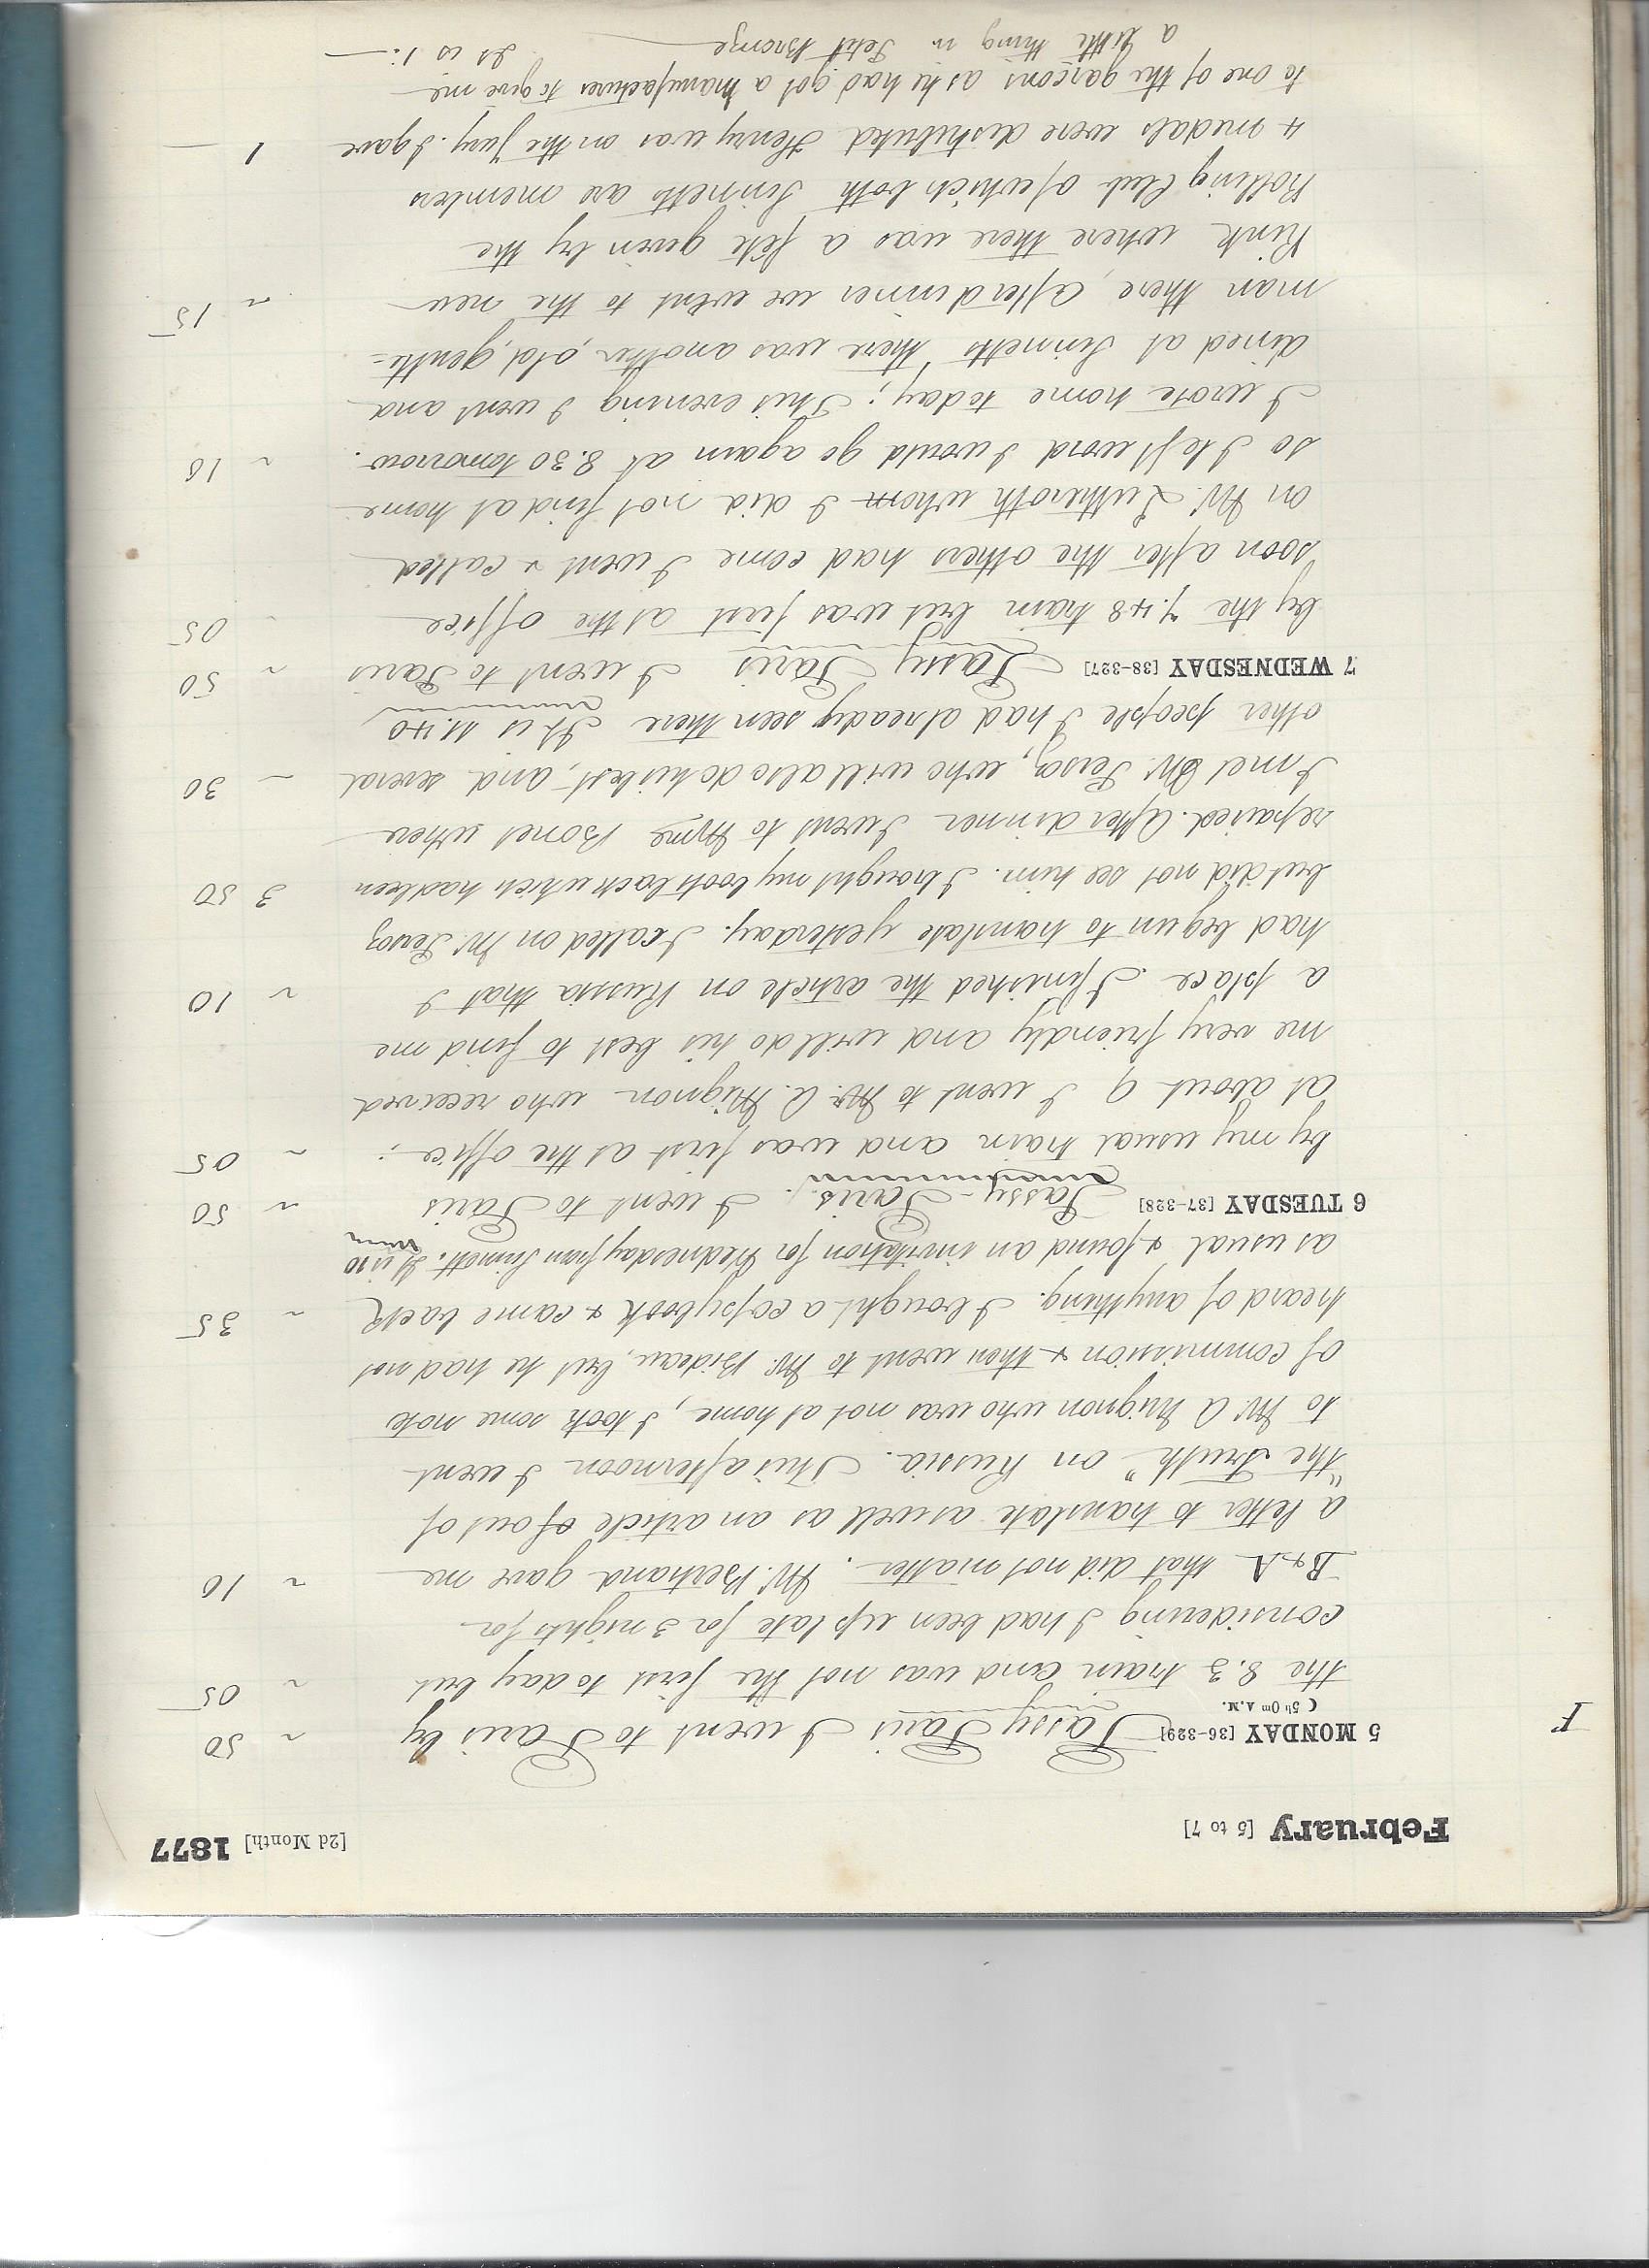 February [5 to 7] [2d Month] 1877
F 5 MONDAY [36-329] Passy Paris I went to Paris by ~ 50
( 5h 0m A.M.
the 8.3 train and was not the first today but ~ 05
considering I had been up late for 3 nights for
B & A that did not matter. Mr. Bertrand gave me ~ 10
a letter to translate as well as an article of out of
"the Truth" on Russia. This afternoon I went
to Mr A Mignon who was not at home, I took some note
of commission & then went to Mr. Bideau, but he had not
heard of anything. I bought a copybook & came back ~ 35
as usual & found an invitation for Wednesday from Sinnett. It is 10
6 TUESDAY [37-328] Passy-Paris. I went to Paris ~ 50
by my usual train and was first at the office; ~ 05
at about 9 I went to Mr. A. Mignon who received
me very friendly and will do his best to find me
a place. I finished the article on Russia that I ~ 10
had begun to translate yesterday. I called on Mr. Persoz
but did not see him. I bought my boots back which had been 3 50
repaired. After dinner I went to Mme Bonet where
I met Mr. Persoz, who will also do his best, and several ~ 30
other people I had already seen there It is 11.40
7 WEDNESDAY [38-327] Passy Paris I went to Paris ~ 50
by the 7.48 train but was first at the office ~ 05
soon after the others had come I went & called
on Mr. Lutteroth whom I did not find at home
so I left word I would go again at 8.30 tomorrow. ~ 10
I wrote home today; This evening I went and
dined at Sinnetts there was another, old, gentle=
man there, after dinner we went to the new ~ 15
Rink where there was a fete given by the
Rolling Club of which both Sinnetts are members
4 medals were distributed Henry was on the Jury. I gave 1 —
to one of the garcons as he had got a manufacturer to give me
a little thing in Petit Bronze It is 1.—